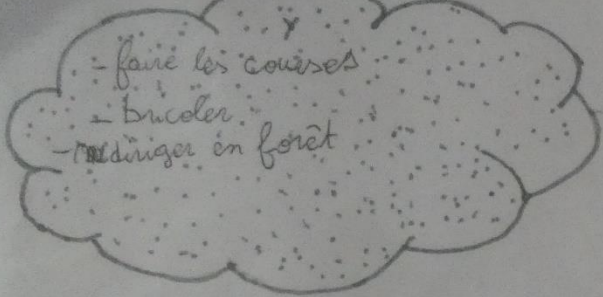 Y
- faire les courses
- bricoler
- me diriger en forêt